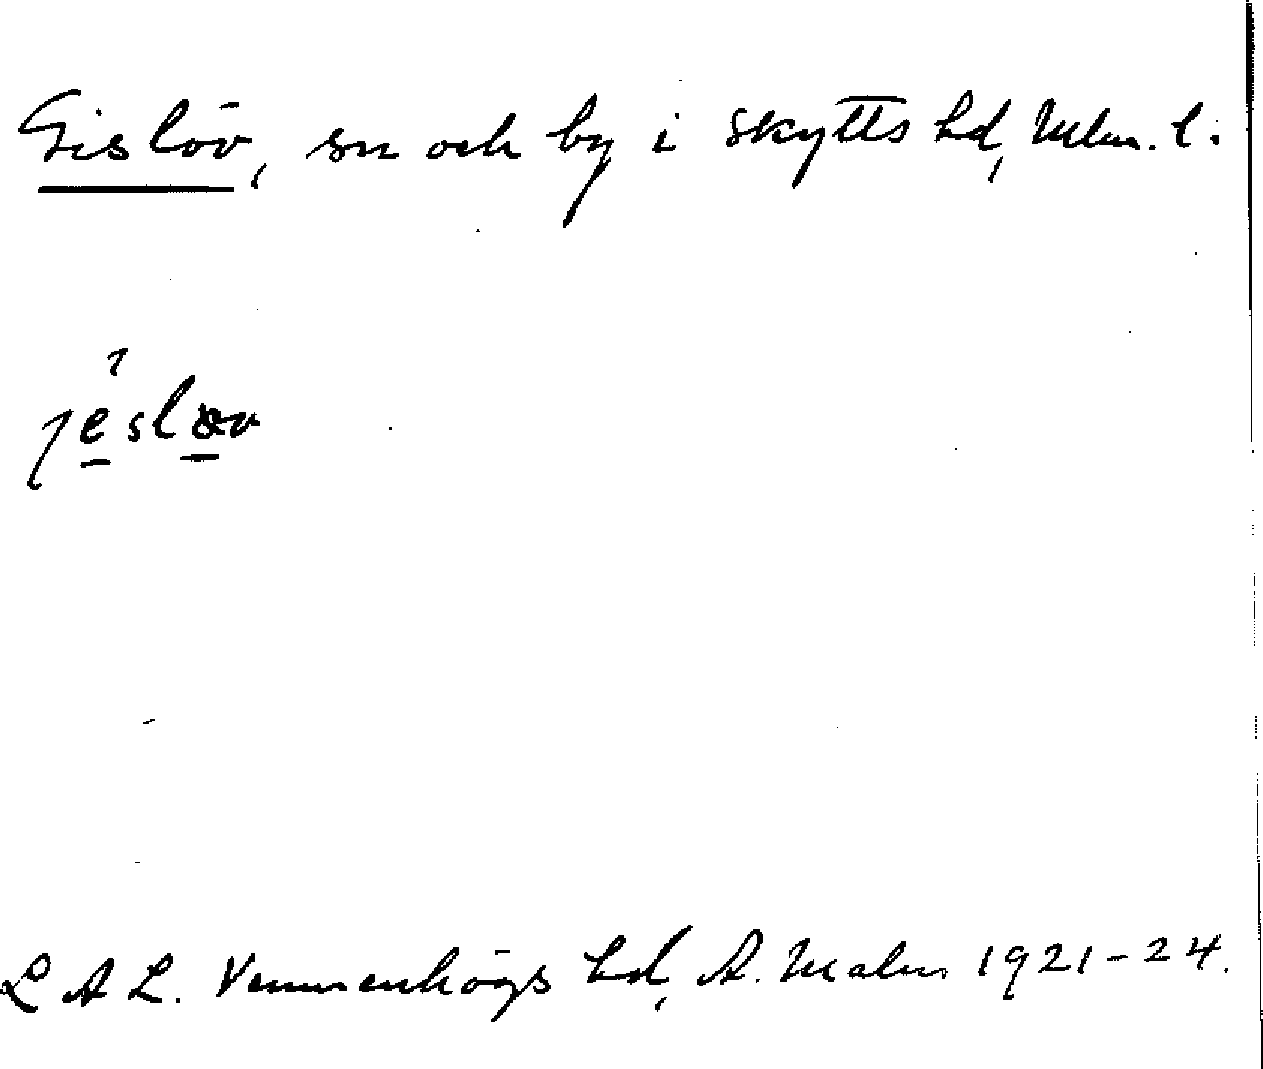 Gislöv, sn och by i Skytts hd, Mlm. l.
jèslœv
L A L. Vemmenhögs hd, A. Malm 1921-24.